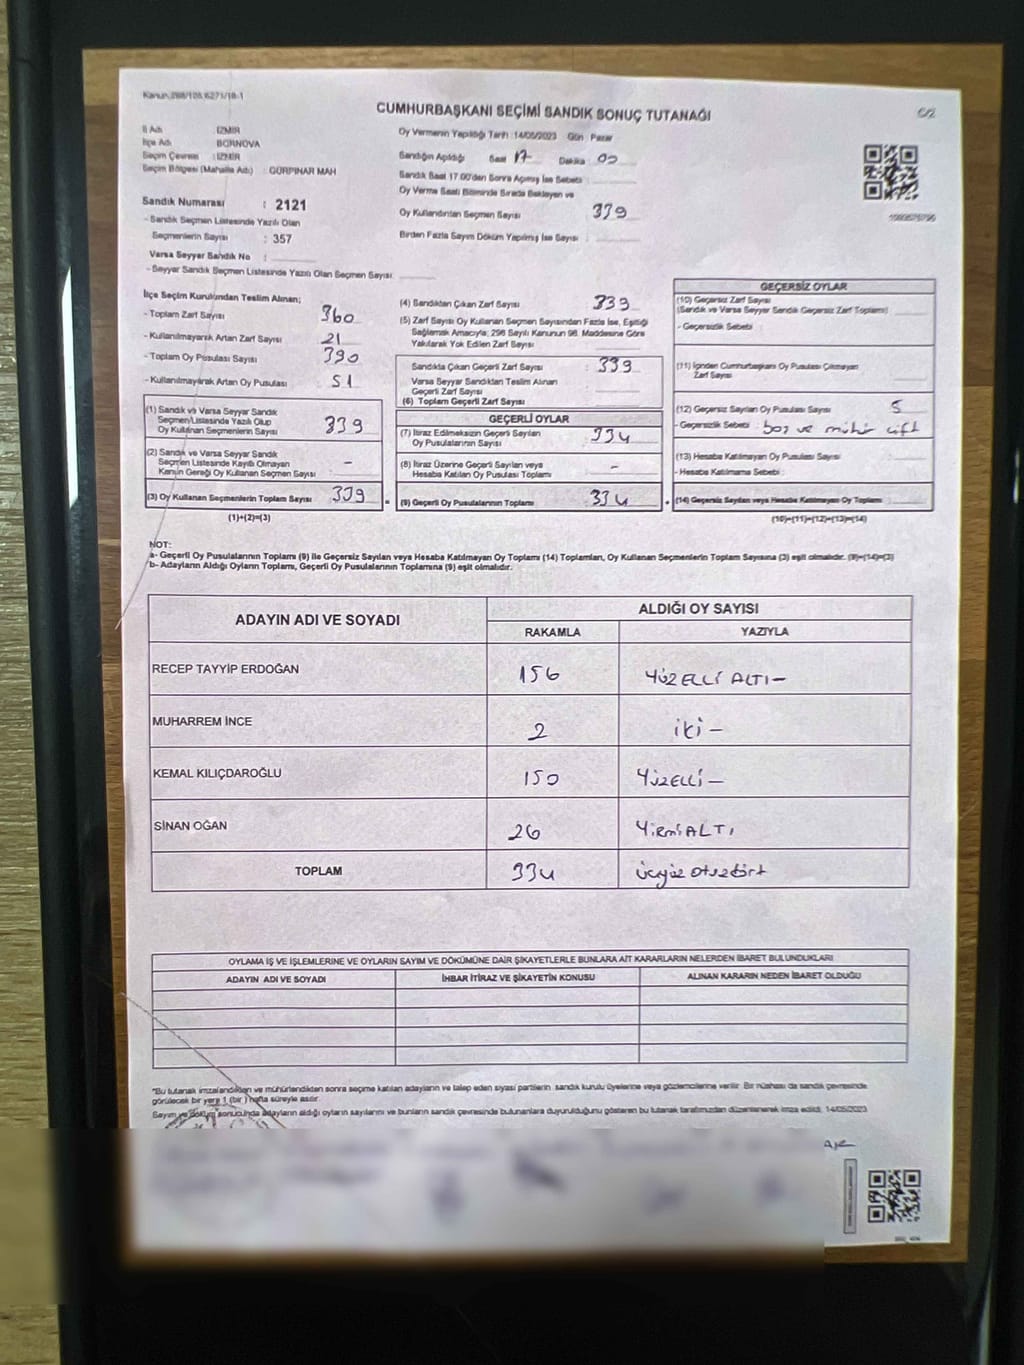 CUMHURBAŞKANI SEÇİMİ SANDIK SONUÇ TUTANAĞI
İl Adı : İZMİR
İlçe Adı : BORNOVA
Seçim Çevresi : İZMİR
Seçim Bölgesi (Mahalle Adı) : GÜRPINAR MAH
Sandık Numarası : 2121
- Sandık Seçmen Listesinde Yazılı Olan
Seçmenlerin Sayısı : 357
Varsa Seyyar Sandık No :
- Seyyar Sandık Seçmen Listesinde Yazılı Olan Seçmen Sayısı:
Oy Vermenin Yapıldığı Tarih :14/05/2023 Gün : Pazar
Sandığın Açıldığı Saat 17 Dakika 00
Sandık Saat 17.00'den Sonra Açılmış İse Sebebi :
Oy Verme Saati Bitiminde Sırada Bekleyen ve
Oy Kullandırılan Seçmen Sayısı 339
Birden Fazla Sayım Döküm Yapılmış İse Sayısı :
İlçe Seçim Kurulundan Teslim Alınan;
- Toplam Zarf Sayısı 360
- Kullanılmayarak Artan Zarf Sayısı 21
- Toplam Oy Pusulası Sayısı 390
- Kullanılmayarak Artan Oy Pusulası 51
(1) Sandık ve Varsa Seyyar Sandık
Seçmen Listesinde Yazılı Olup
Oy Kullanan Seçmenlerin Sayısı 339
(2) Sandık ve Varsa Seyyar Sandık
Seçmen Listesinde Kayıtlı Olmayan
Kanun Gereği Oy Kullanan Seçmen Sayısı -
(3) Oy Kullanan Seçmenlerin Toplam Sayısı 339
(1)+(2)=(3)
(4) Sandıktan Çıkan Zarf Sayısı 339
(5) Zarf Sayısı Oy Kullanan Seçmen Sayısından Fazla İse, Eşitliği
Sağlamak Amacıyla; 298 Sayılı Kanunun 98. Maddesine Göre
Yakılarak Yok Edilen Zarf Sayısı
Sandıkta Çıkan Geçerli Zarf Sayısı : 339
Varsa Seyyar Sandıktan Teslim Alınan
Geçerli Zarf Sayısı
(6) Toplam Geçerli Zarf Sayısı
GEÇERLİ OYLAR
(7) İtiraz Edilmeksizin Geçerli Sayılan
Oy Pusulalarının Sayısı 334
(8) İtiraz Üzerine Geçerli Sayılan veya
Hesaba Katılan Oy Pusulası Toplamı -
(9) Geçerli Oy Pusulalarının Toplamı 334
GEÇERSİZ OYLAR
(10) Geçersiz Zarf Sayısı
(Sandık ve Varsa Seyyar Sandık Geçersiz Zarf Toplamı)
- Geçersizlik Sebebi :
(11) İçinden Cumhurbaşkanı Oy Pusulası Çıkmayan
Zarf Sayısı
(12) Geçersiz Sayılan Oy Pusulası Sayısı 5
- Geçersizlik Sebebi : boş ve mühür çift
(13) Hesaba Katılmayan Oy Pusulası Sayısı
- Hesaba Katılmama Sebebi :
(14) Geçersiz Sayılan veya Hesaba Katılmayan Oy Toplamı
(10)+(11)+(12)+(13)=(14)
NOT:
a- Geçerli Oy Pusulalarının Toplamı (9) ile Geçersiz Sayılan veya Hesaba Katılmayan Oy Toplamı (14) Toplamları, Oy Kullanan Seçmenlerin Toplam Sayısına (3) eşit olmalıdır. (9)+(14)=(3)
b- Adayların Aldığı Oyların Toplamı, Geçerli Oy Pusulalarının Toplamına (9) eşit olmalıdır.
ADAYIN ADI VE SOYADI ALDIĞI OY SAYISI
RAKAMLA YAZIYLA
RECEP TAYYİP ERDOĞAN 156 YÜZELLİ ALTI-
MUHARREM İNCE 2 iki-
KEMAL KILIÇDAROĞLU 150 YÜZELLİ-
SİNAN OĞAN 26 YİRMİALTI
TOPLAM 334 üçyüz otuzdört
OYLAMA İŞ VE İŞLEMLERİNE VE OYLARIN SAYIM VE DÖKÜMÜNE DAİR ŞİKAYETLERLE BUNLARA AİT KARARLARIN NELERDEN İBARET BULUNDUKLARI
ADAYIN ADI VE SOYADI İHBAR İTİRAZ VE ŞİKAYETİN KONUSU ALINAN KARARIN NEDEN İBARET OLDUĞU
*Bu tutanak imzalandıktan ve mühürlendikten sonra seçime katılan adayların ve talep eden siyasi partilerin, sandık kurulu üyelerine veya gözlemcilerine verilir. Bir nüshası da sandık çevresinde
görülecek bir yere 1 (bir) hafta süreyle asılır.
Sayım ve döküm sonucunda adayların aldığı oyların sayılarını ve bunların sandık çevresinde bulunanlara duyurulduğunu gösteren bu tutanak tarafımızdan düzenlenerek imza edildi. 14/05/2023